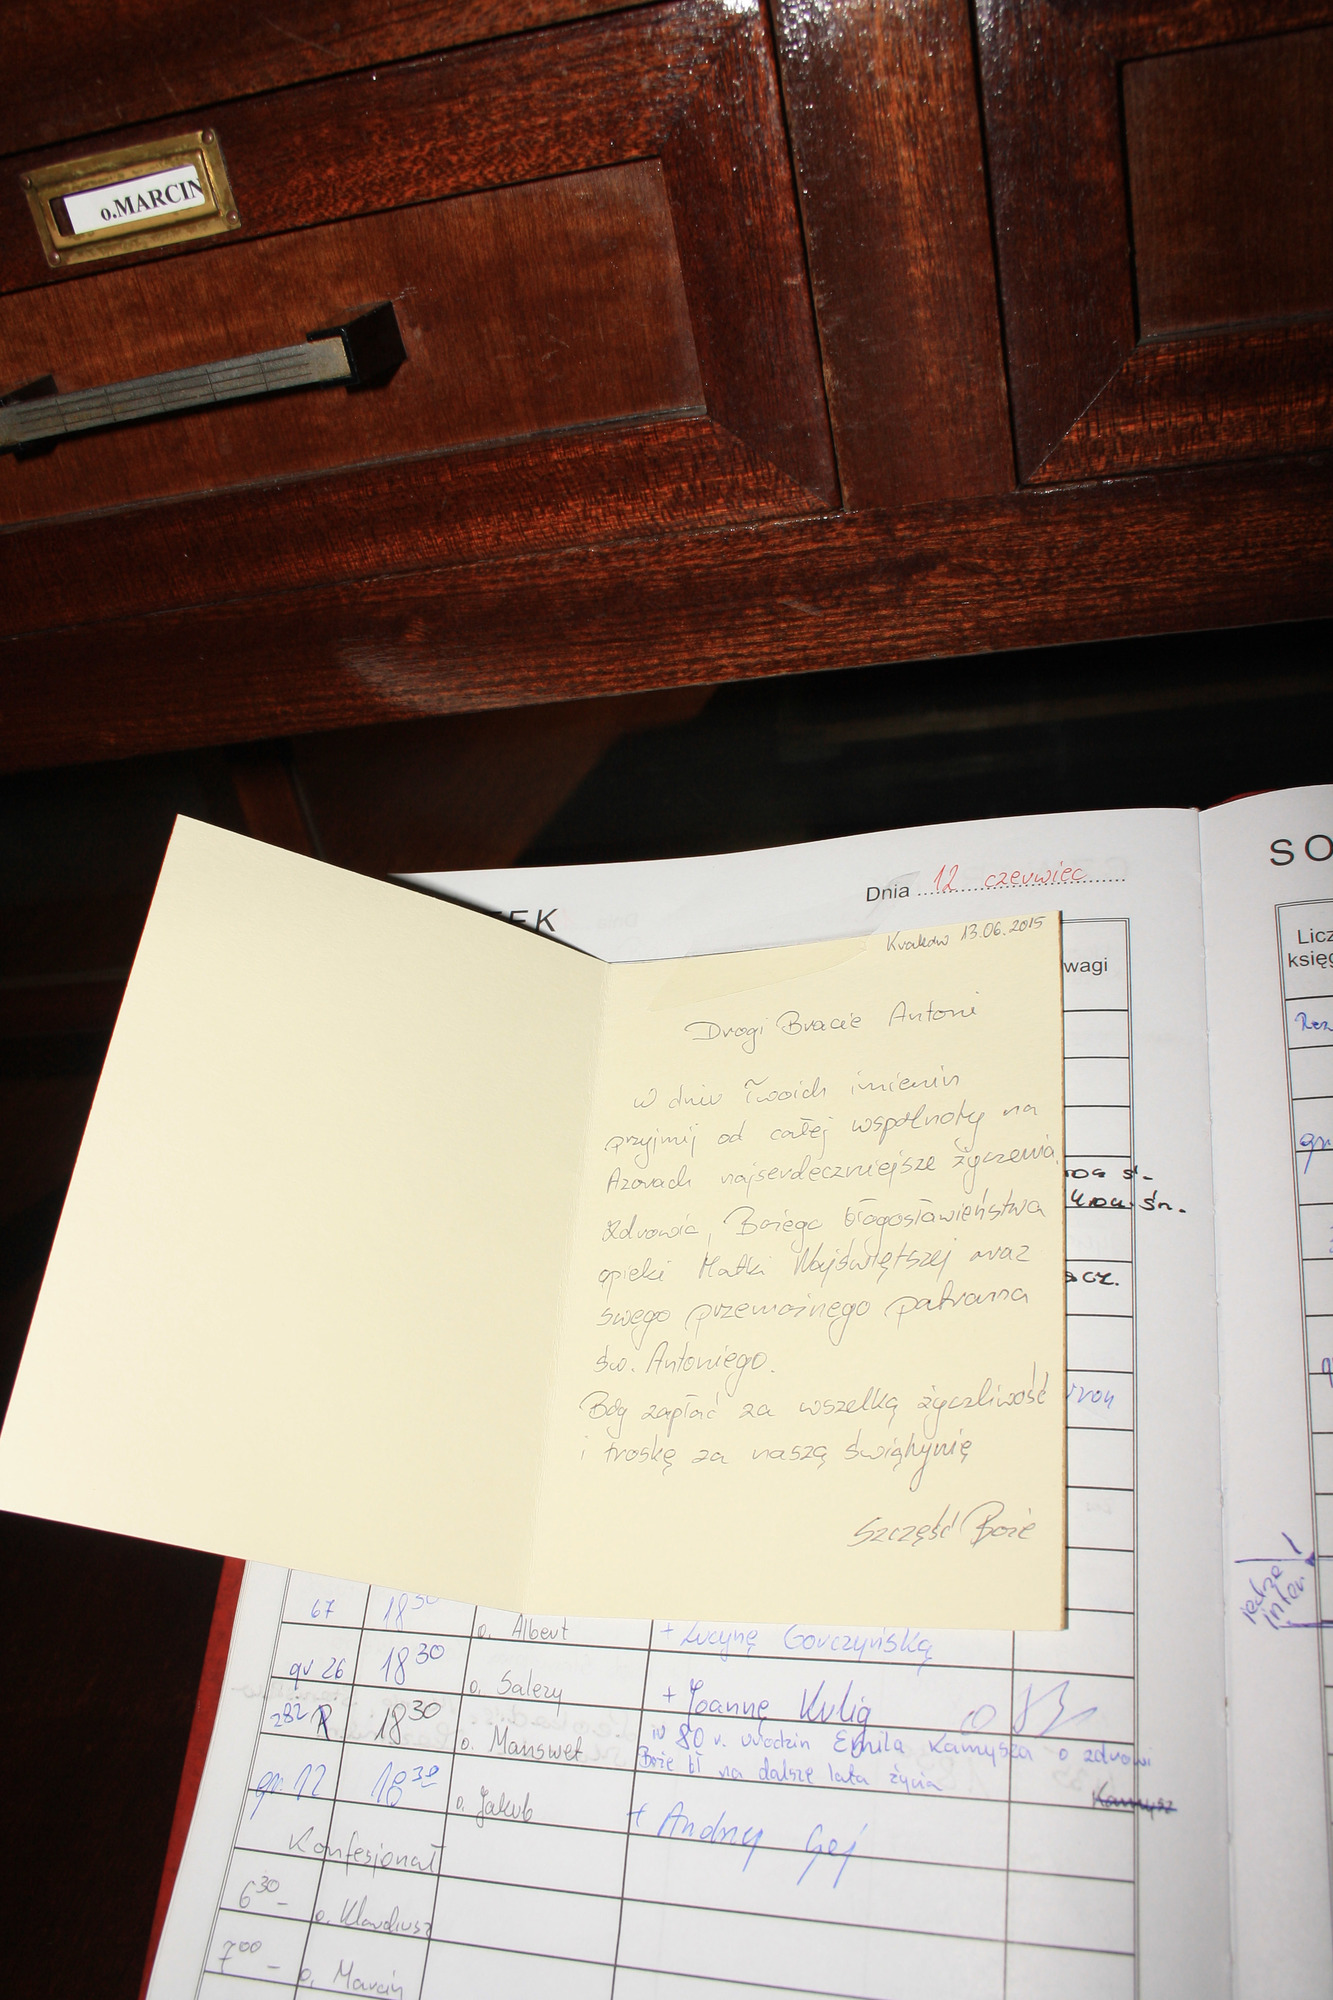 o.MARCIN
Dnia 12 czerwiec
EK
wagi
Kraków 13.06.2015
Drogi Bracie Antoni
W dniu Twoich imienin
przyjmij od całej wspólnoty na
Azorach najserdeczniejsze życzenia
zdrowia, Bożego błogosławieństwa
opieki Matki Najświętszej oraz
swego przemożnego patrona
św. Antoniego.
Bóg zapłać za wszelką życzliwość
i troskę za naszą świątynię
Szczęść Boże
67 18 30 o. Albert + Lucynę Gorczyńską
gr 26 18 30 o. Salezy + Joannę Kulig
282 R 18 30 o. Manswet w 80 r. urodzin Emila Kamysza o zdrowi
Boże bł na dalsze lata życia
Kamysz
gr. 12 18 30 o. Jakub + Andrzej Gej
Konfesjonał
6 30 - o. Klaudiusz
7 00 - o. Marcin
SO
Licz
księg